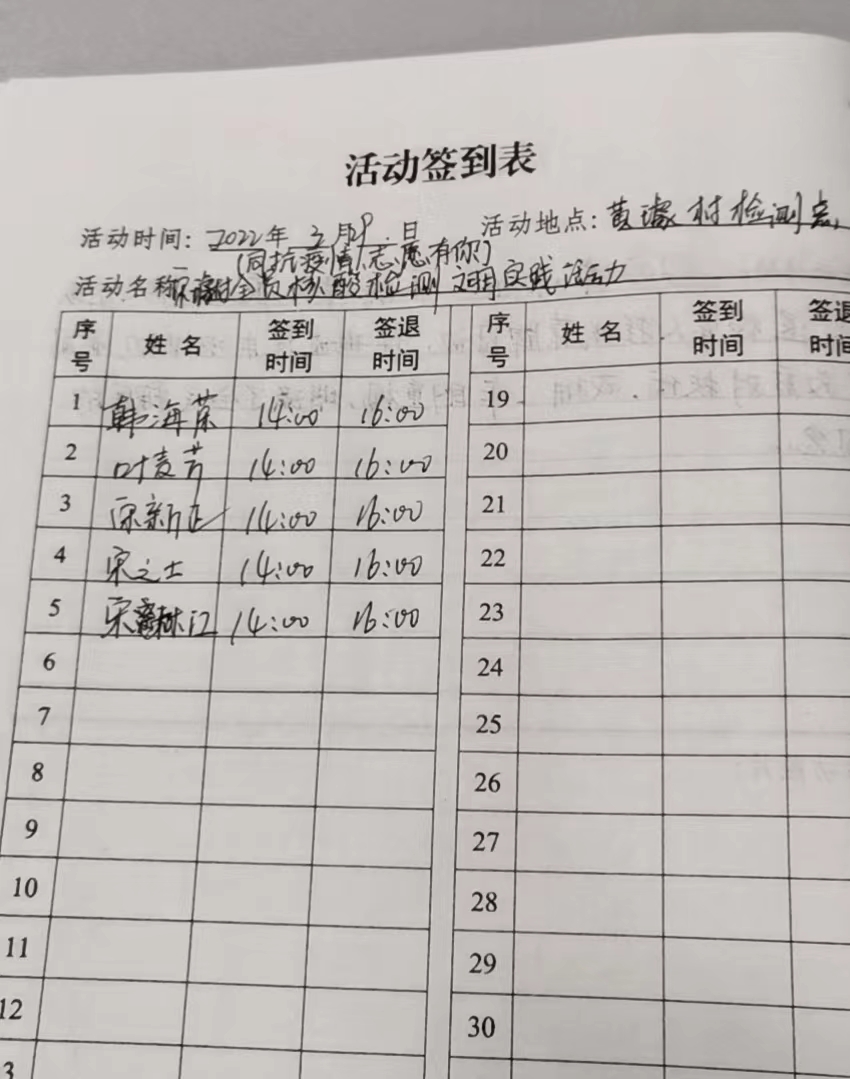 活动签到表
活动时间: 2022年 3月29日 活动地点: 黄 村检测点
(同抗疫情,志愿有你)
活动名称: 全员核酸检测文明实践活动
序号 姓名 签到时间 签退时间 序号 姓名 签到时间 签退时间
1 韩海荣 14:00 16:00 19
2 叶麦芳 14:00 16:00 20
3 新正 14:00 16:00 21
4 宋之士 14:00 16:00 22
5 宋 江 14:00 16:00 23
6 24
7 25
8 26
9 27
10 28
11 29
12 30
3